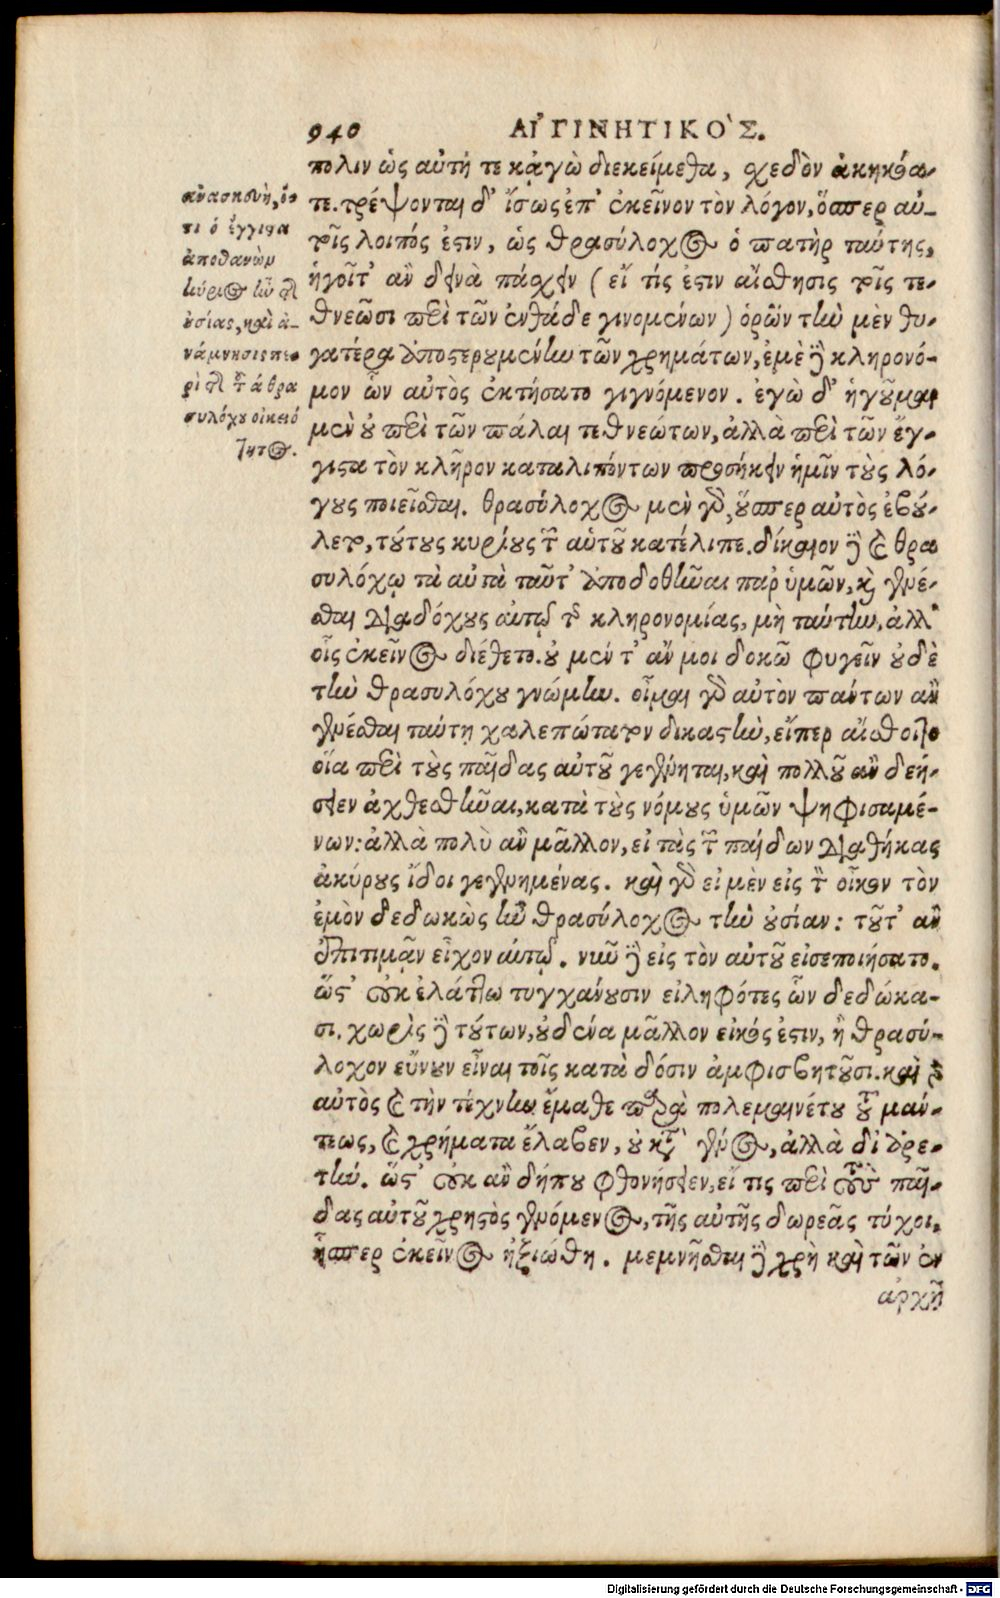 940 ΑἸΓΙΝΗΤΙΚΟ`Σ.
πολιν ὡς αὐτή τε κᾀγὼ διεκείμεθα, σχεδὸν ἀκηκόα-
τε. τρέψονται δ' ἴσως ἐπ' ἐκεῖνον τὸν λόγον, ὅσπερ αὐ-
τοῖς λοιπός ἐστιν, ὡς θρασύλοχος ὁ πατὴρ ταύτης,
ἡγοῖτ' ἂν δεινὰ πάσχειν (εἴ τίς ἐστιν αἴσθησις τοῖς τε-
θνεῶσι περὶ τῶν ἐνθάδε γινομένων) ὁρῶν τὴν μὲν θυ-
γατέρα ἀποστερουμένην τῶν χρημάτων, ἐμὲ δὲ κληρονό-
μον ὧν αὐτὸς ἐκτήσατο γιγνόμενον. ἐγὼ δ' ἡγοῦμαι
μὲν οὐ περὶ τῶν πάλαι τεθνεώτων, ἀλλὰ περὶ τῶν ἔγ-
γιστα τὸν κλῆρον καταλιπόντων προσήκειν ἡμῖν τοὺς λό-
γους ποιεῖσθαι. θρασύλοχος μὲν γὰρ, οὕσπερ αὐτὸς ἐβού-
λετο, τούτους κυρίους τῶν αὑτοῦ κατέλιπε. δίκαιον δὲ καὶ θρα
συλόχῳ τὰ αὐτὰ ταῦτ' ἀποδοθῆναι παρ' ὑμῶν, καὶ γενέ-
σθαι διαδόχους αὐτῷ τῆς κληρονομίας, μὴ ταύτην, ἀλλ'
οἷς ἐκεῖνος διέθετο. οὐ μέν τ' ἄν μοι δοκῶ φυγεῖν οὐδὲ
τὴν θρασυλόχου γνώμην. οἶμαι γὰρ αὐτὸν πάντων ἂν
γενέσθαι ταύτῃ χαλεπώτατον δικαστὴν, εἴπερ αἴσθοιτο
οἵα περὶ τοὺς παῖδας αὐτοῦ γεγένηται, καὶ πολλοῦ ἂν δεή-
σειεν ἀχθεσθῆναι, κατὰ τοὺς νόμους ὑμῶν ψηφισαμέ-
νων: ἀλλὰ πολὺ ἂν μᾶλλον, εἰ τὰς τῶν παίδων διαθήκας
ἀκύρους ἴδοι γεγενημένας. καὶ γὰρ εἰ μὲν εἰς τὸν οἶκον τὸν
ἐμὸν δεδωκὼς ἦν θρασύλοχος τὴν οὐσίαν: τοῦτ' ἂν
ἐπιτιμᾷν εἶχον αὐτῷ. νῦν δὲ εἰς τὸν αὐτοῦ εἰσεποιήσατο.
ὥστ' οὐκ ἐλάττω τυγχάνουσιν εἰληφότες ὧν δεδώκα-
σι. χωρὶς δὲ τούτων, οὐδένα μᾶλλον εἰκός ἐστιν, ἢ θρασύ-
λοχον εὔνουν εἶναι τοῖς κατὰ δόσιν ἀμφισβητοῦσι. καὶ γὰρ
αὐτὸς καὶ τὴν τέχνην ἔμαθε παρὰ πολεμαινέτου τοῦ μάν-
τεως, καὶ χρήματα ἔλαβεν, οὐ κατὰ γένος, ἀλλὰ δι' ἀρε-
τήν. ὥστ' οὐκ ἂν δήπου φθονήσειεν, εἴ τις περὶ τοὺς παῖ-
δας αὐτοῦ χρηστὸς γενόμενος, τῆς αὐτῆς δωρεᾶς τύχοι,
ἧσπερ ἐκεῖνος ἠξιώθη. μεμνῆσθαι δὲ χρὴ καὶ τῶν ἐν
ἀρχῇ
ἀνασκευὴ, ὅ-
τι ὁ ἔγγιστα
ἀποθανὼν
κύριος ἦν τῆς
οὐσίας, καὶ ἀ-
νάμνησις πε-
ρὶ τῆς τῶν ἀθρα
συλόχου οἰκειό
τητος.
Digitalisierung gefördert durch die Deutsche Forschungsgemeinschaft - DFG